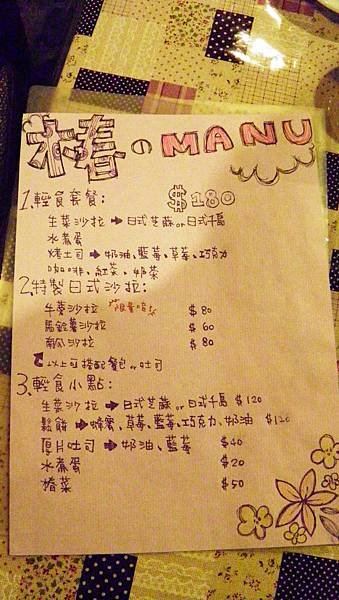 椿のMANU
1.輕食套餐: $180
生菜沙拉➡日式芝麻or日式千島
水煮蛋
烤土司➡奶油、藍莓、草莓、巧克力
咖啡、紅茶、奶茶
2.特製日式沙拉:
牛蒡沙拉 $80
馬鈴薯沙拉 $60
南瓜沙拉 $80
以上可搭配餐包or吐司
3.輕食小點:
生菜沙拉➡日式芝麻or日式千島 $120
鬆餅➡蜂蜜、草莓、藍莓、巧克力、奶油 $120
厚片吐司➡奶油、藍莓 $40
水煮蛋 $20
椿菜 $50